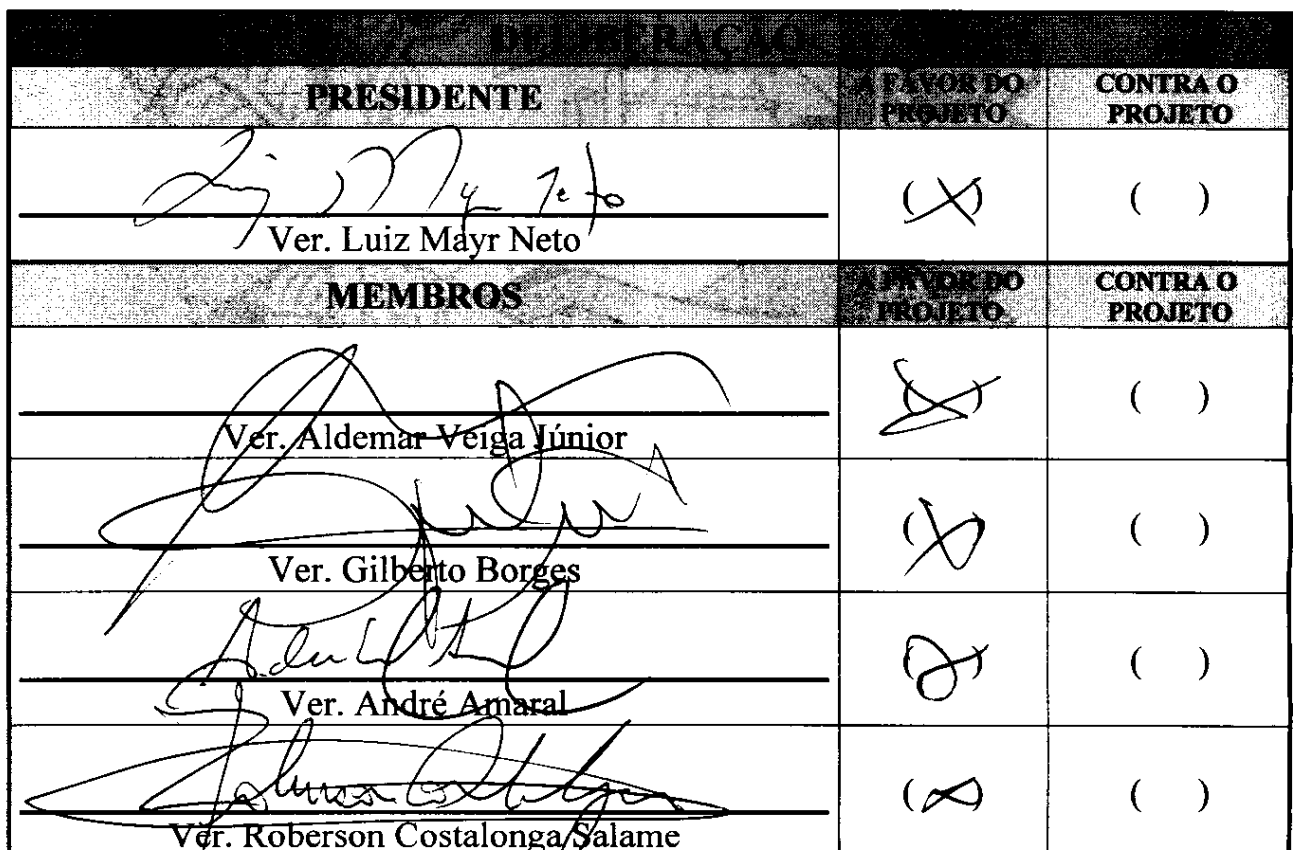 DELIBERAÇÃO
PRESIDENTE A FAVOR DO PROJETO CONTRA O PROJETO
Luiz Mayr Neto
Ver. Luiz Mayr Neto (X) ( )
MEMBROS A FAVOR DO PROJETO CONTRA O PROJETO
Ver. Aldemar Veiga Júnior (X) ( )
Ver. Gilberto Borges (X) ( )
Ver. André Amaral (X) ( )
Ver. Roberson Costalonga Salame (X) ( )